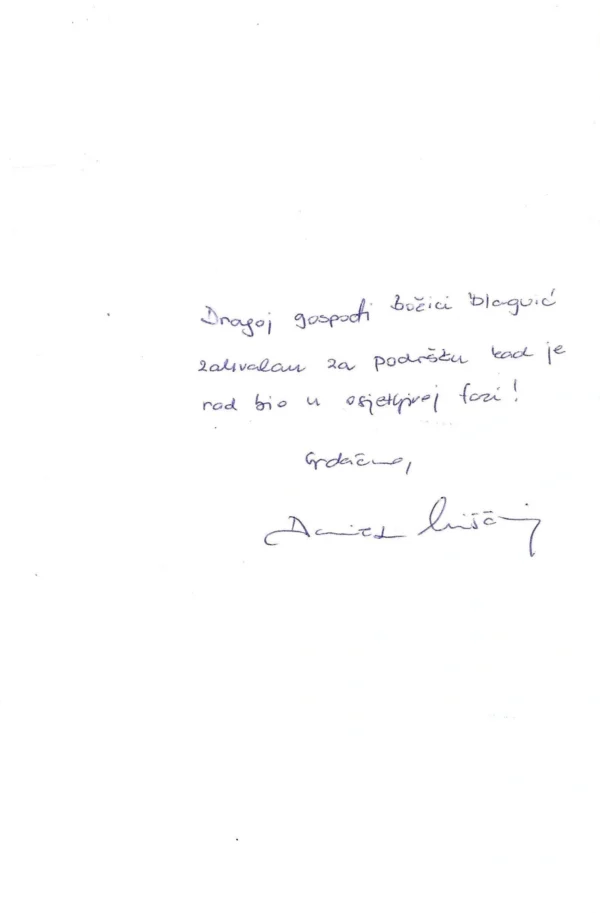 Dragoj gospođi Božici Blagvić
zahvalan za podršku kad je
rad bio u osjetljivoj fazi!
Srdačno,
Daniel